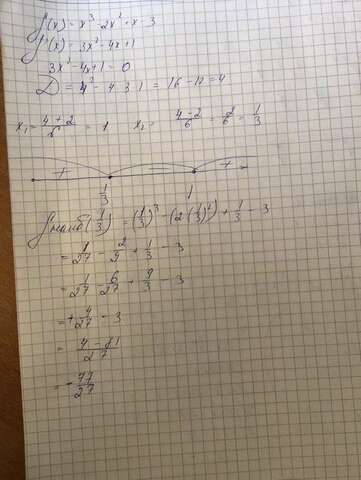 f(x) = x³ - 2x² + x - 3
f'(x) = 3x² - 4x + 1
3x² - 4x + 1 = 0
D = 4² - 4·3·1 = 16 - 12 = 4
x₁ = (4 + 2)/6 = 1 x₂ = (4 - 2)/6 = 2/6 = 1/3
+ - +
1/3 1
f наиб (1/3) = (1/3)³ - (2(1/3)²) + 1/3 - 3
= 1/27 - 2/9 + 1/3 - 3
= 1/27 - 6/27 + 9/3 - 3
= + 4/27 - 3
= (4 - 81)/27
= - 77/27